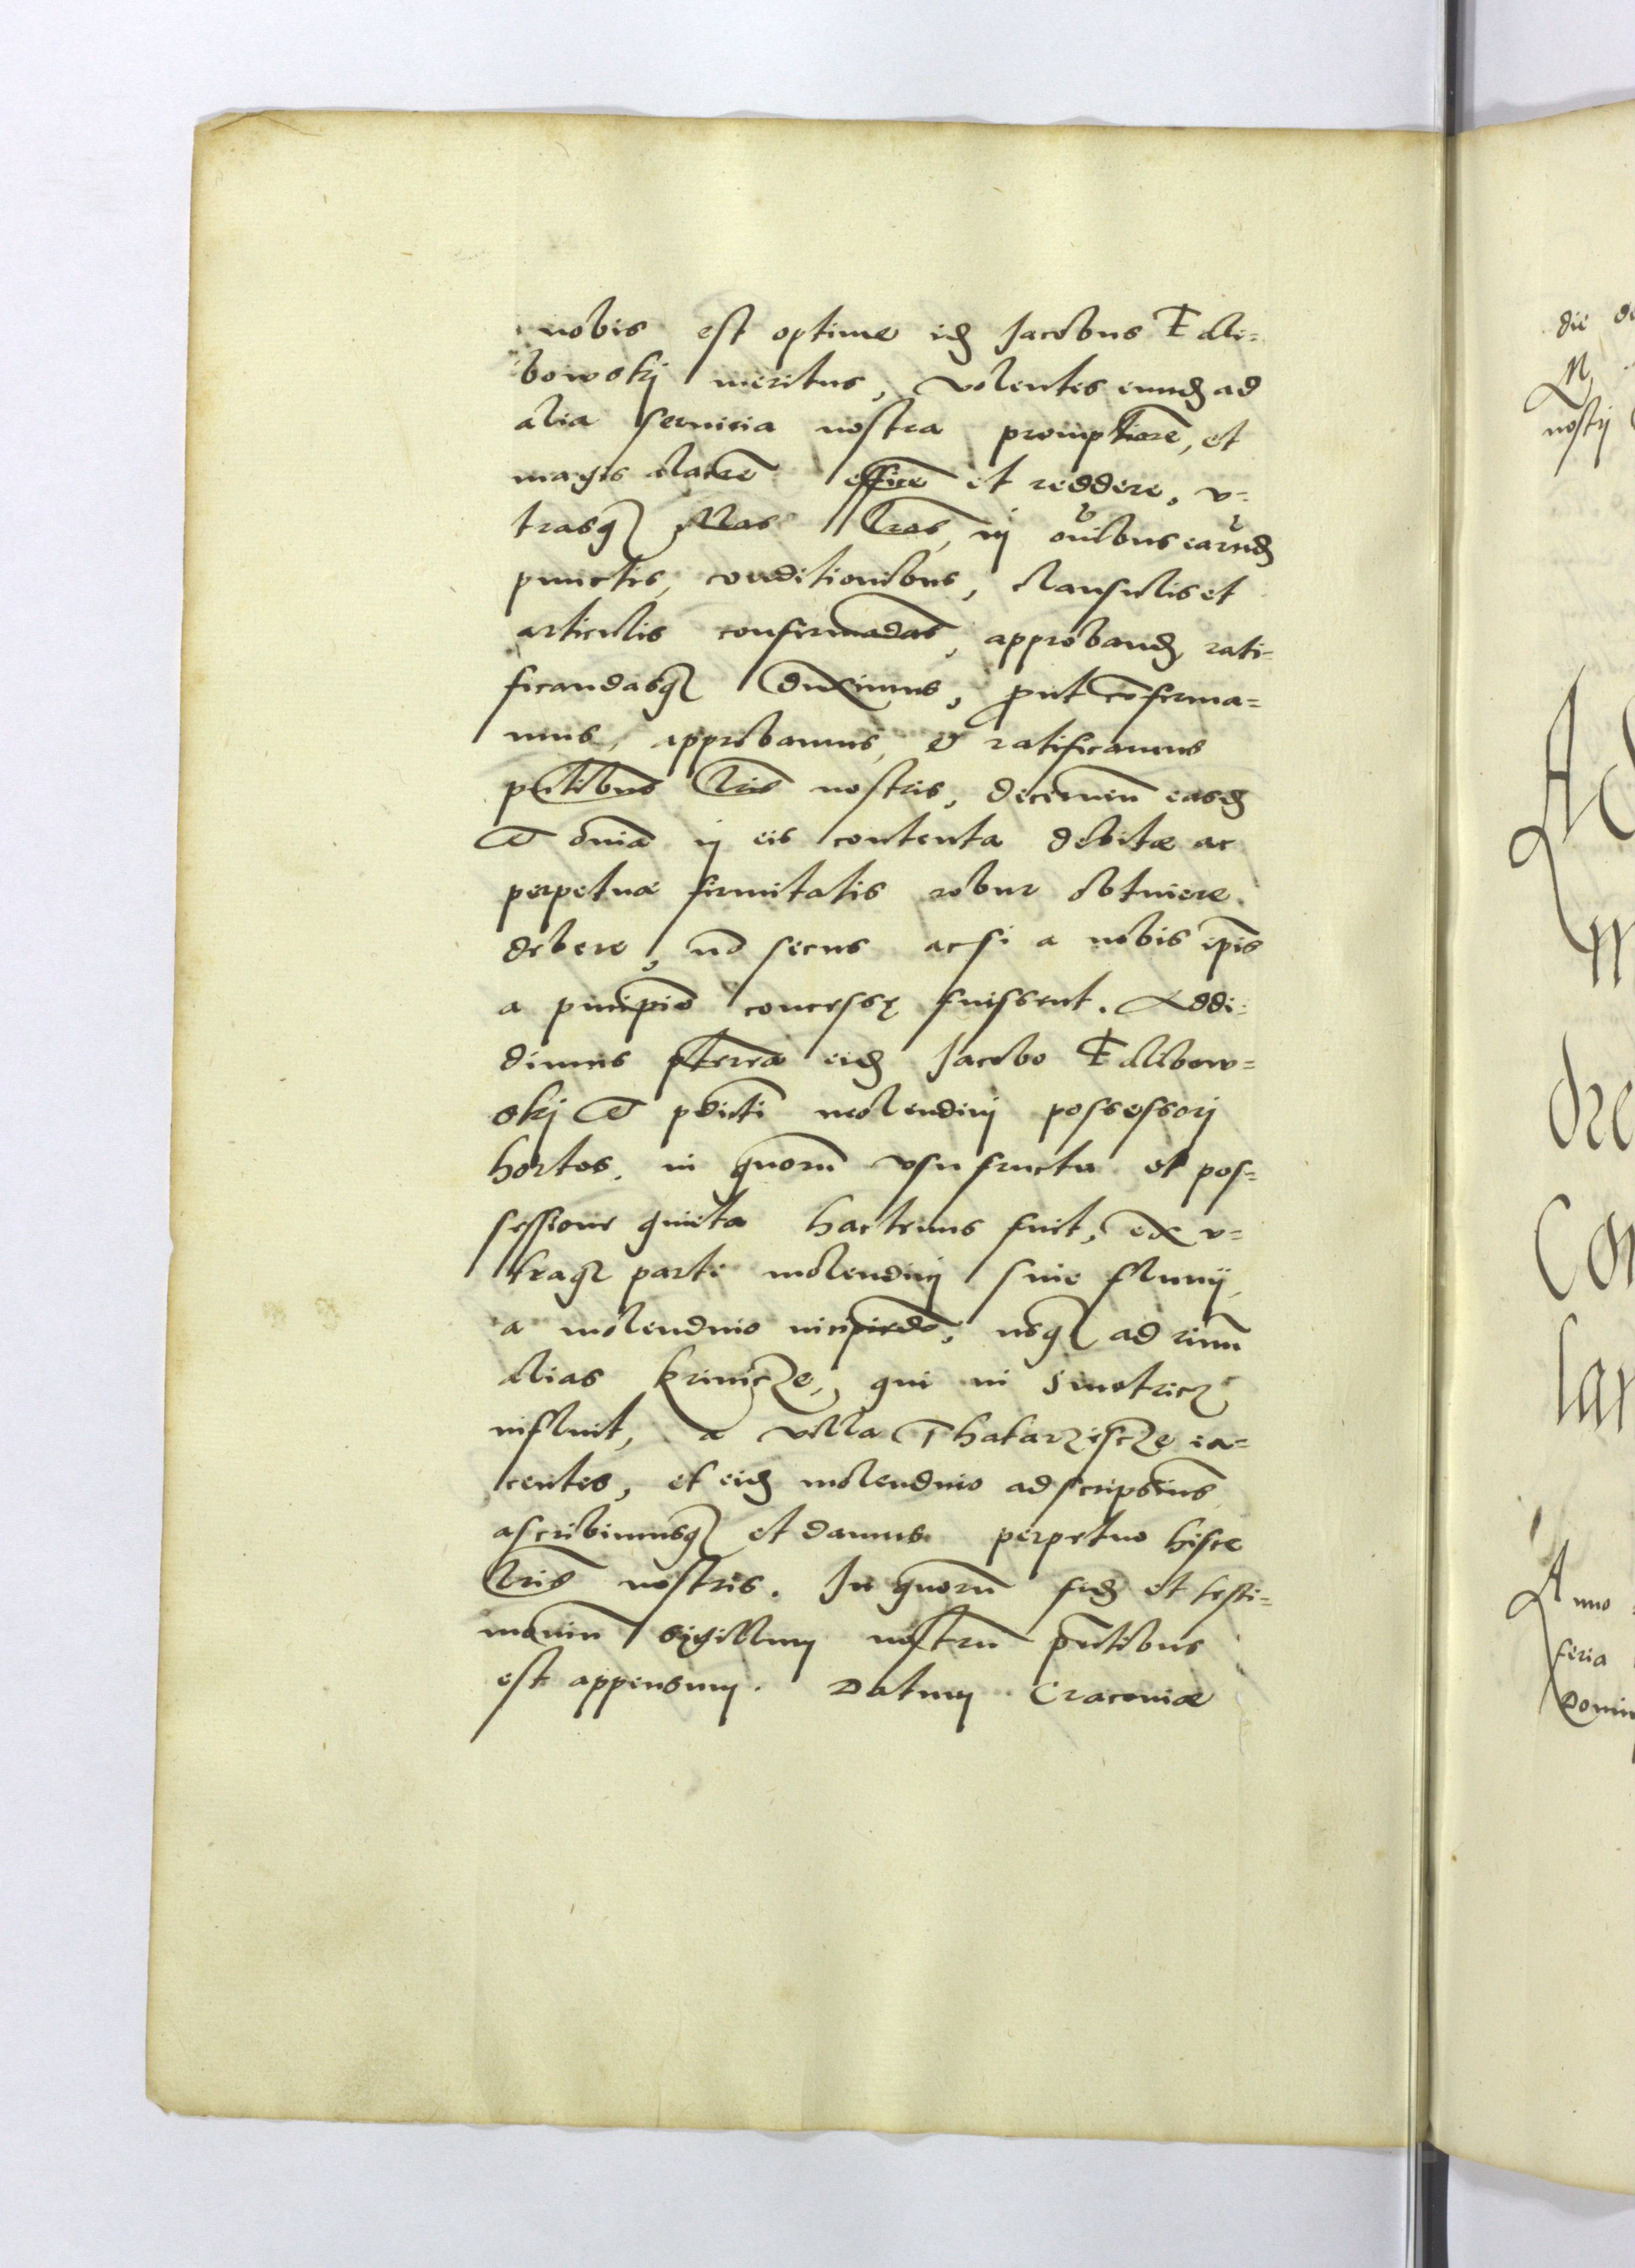 nobis est optime idē Jacobus Tali=
bowskj meritus, volentes eundē ad
alia seruicia nostra promptiorē, et
magis alacrē efficē et reddere, v=
trasq illas lras, in oībus earūdē
punctis, conditionibus, clausulis et
articulis confirmādas, approbandē rati=
ficandasq̃ duximus, prout cōfirma=
mus, approbamus, et ratificamus
pñtibus lris nostris, decernen̄ easdē
et om̄ia in eis contenta debitæ ac
perpetuæ firmitatis robur obtinere
debere, nō secus acsi a nobis ip̄is
a principio concessę fuissent. Addi=
dimus p̄terea eidē Jacobo Talibow=
skj et p̄dicti molendinj possessorj
hortos, in quorū vsufructu et pos=
sessione quieta hactenus fuit, ex v=
traq parte molendinj siue fluuij,
a molendino incipiēdo, usq ad riuū
alias krinicze, qui in Smotricz
influit, a villa Thatarziscze ia=
centes, et eidē molendino adscripsim̄s
ascribimusq et damus perpetuo hisce
lris nostris. In quorū fidē et testi=
moniū sigillum nostrū p̄ntibus
est appensum. Datum Cracouiæ
die
nostrj
A
Con
lar
Anno
feria
Domin